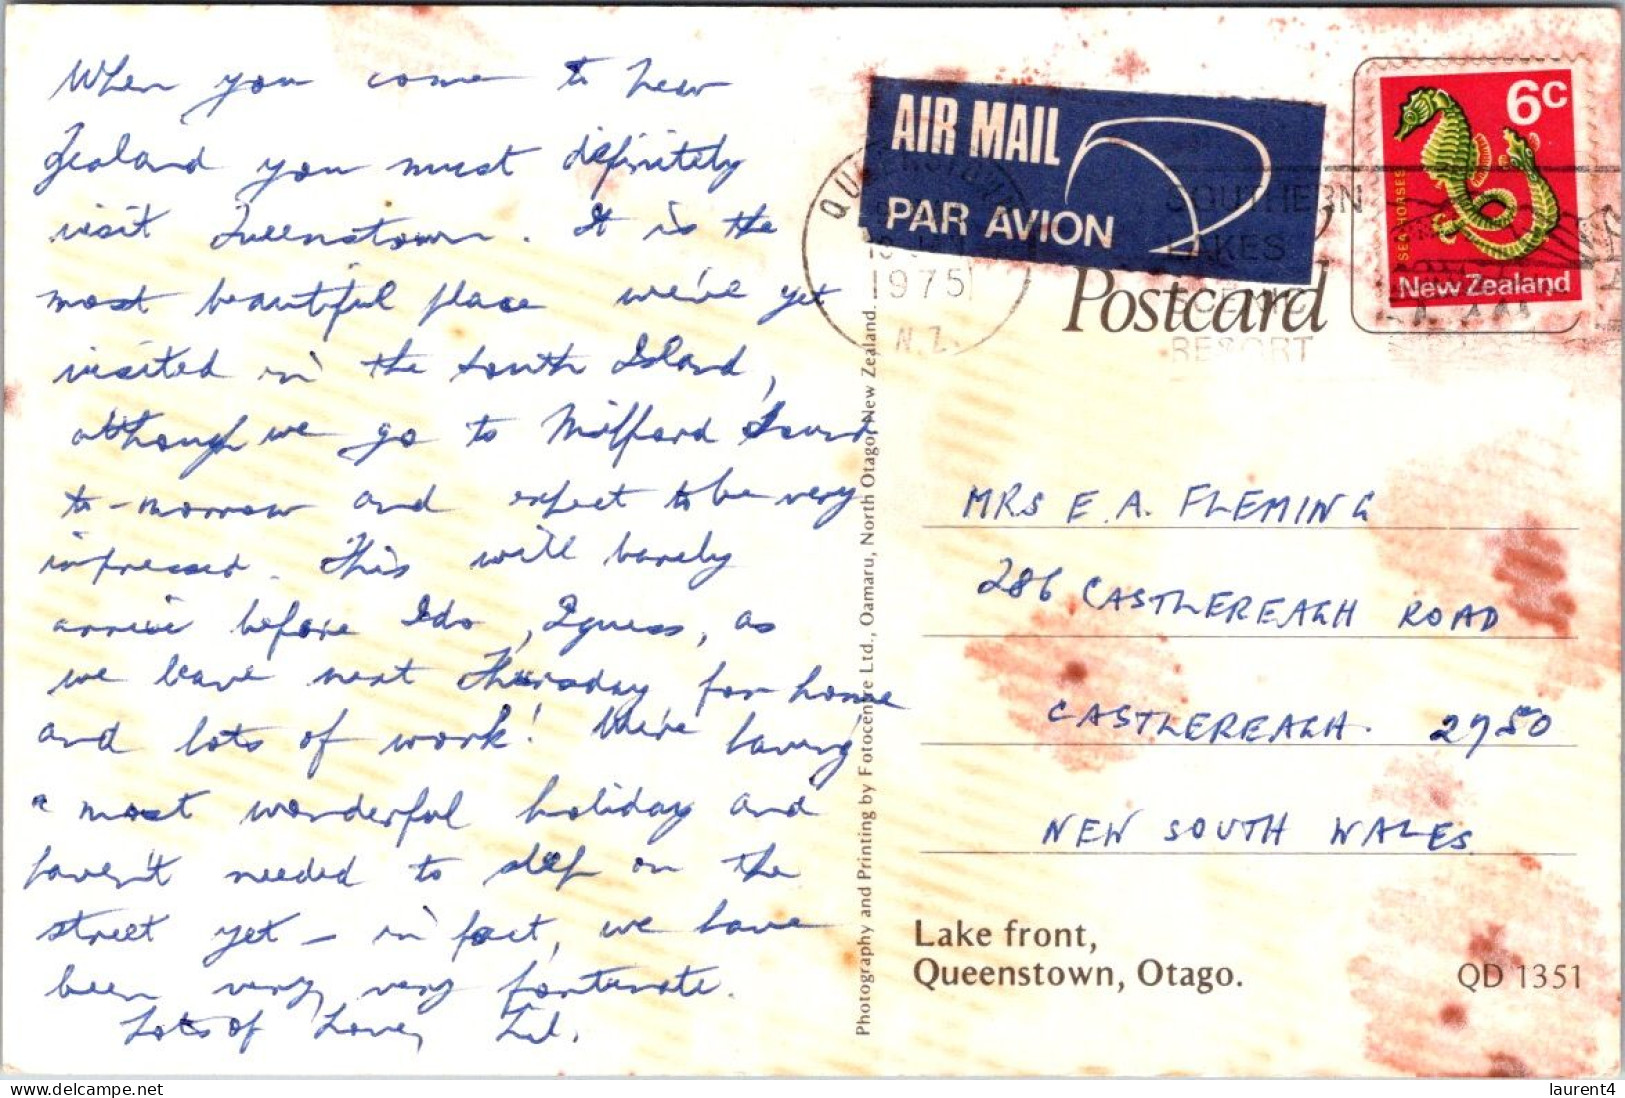 When you come to New
Zealand you must definitely
visit Queenstown. It is the
most beautiful place we've yet
visited in the South Island,
although we go to Milford Sound
to-morrow and expect to be very
impressed. This will barely
arrive before I do, I guess, as
we leave next Thursday for home
and lots of work! We're having
a most wonderful holiday and
haven't needed to sleep on the
street yet — in fact, we have
been very, very fortunate.
Lots of Love,
AIR MAIL
PAR AVION
QUEENSTOWN
1975
N.Z.
SOUTHERN
LAKES
RESORT
6c
SEA HORSES
New Zealand
Postcard
MRS E. A. FLEMING
286 CASTLEREAGH ROAD
CASTLEREAGH. 2750
NEW SOUTH WALES
Lake front,
Queenstown, Otago.
QD 1351
Photography and Printing by Fotocentre Ltd., Oamaru, North Otago, New Zealand.
laurent4